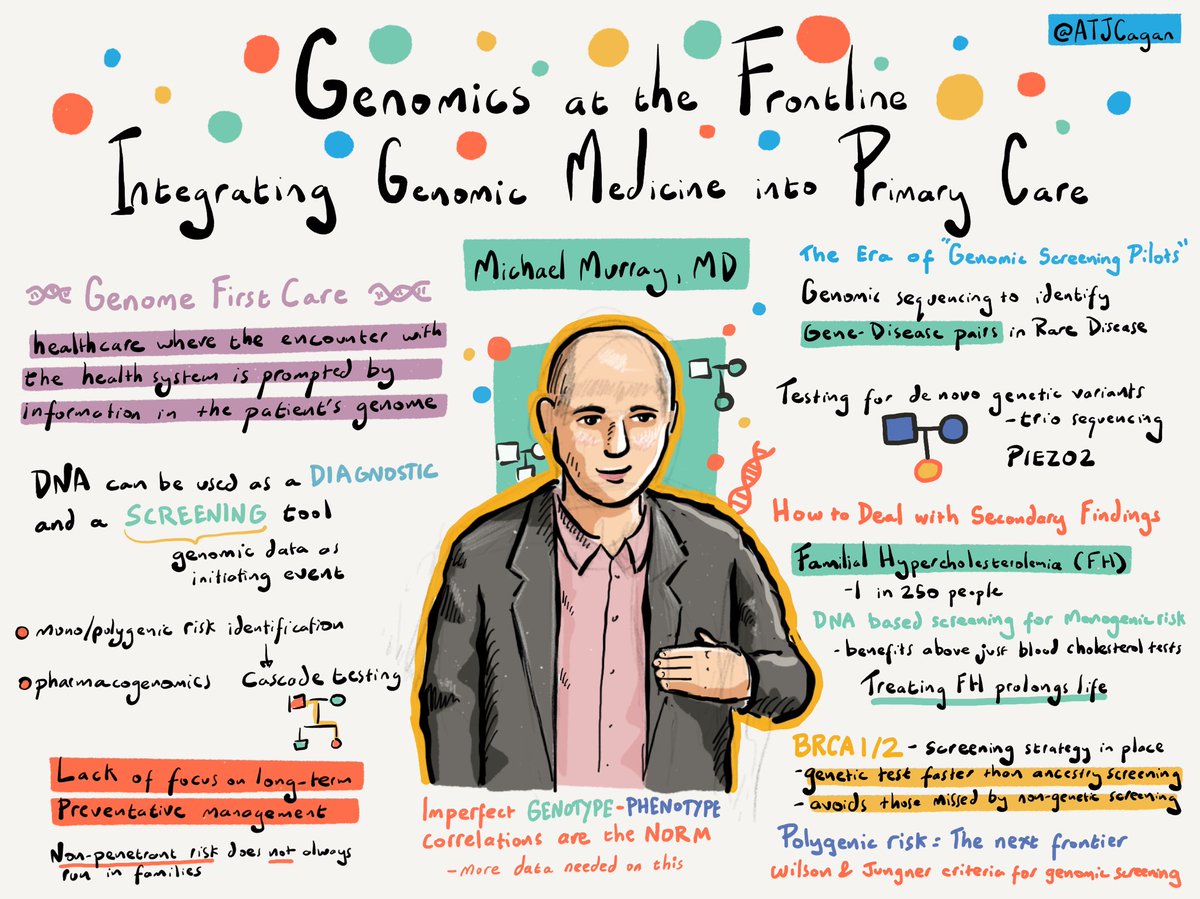 @ATJCagan
Genomics at the Frontline
Integrating Genomic Medicine into Primary Care
Genome First Care
healthcare where the encounter with
the health system is prompted by
information in the patient's genome
DNA can be used as a DIAGNOSTIC
and a SCREENING tool
genomic data as
initiating event
mono/polygenic risk identification
pharmacogenomics
Cascade testing
Lack of focus on long-term
Preventative management
Non-penetrant risk does not always
run in families
Michael Murray, MD
Imperfect GENOTYPE-PHENOTYPE
correlations are the NORM
- More data needed on this
The Era of "Genomic Screening Pilots"
Genomic sequencing to identify
Gene-Disease pairs in Rare Disease
Testing for de novo genetic variants
- trio sequencing
PIEZO2
How to Deal with Secondary Findings
Familial Hypercholesterolemia (FH)
- 1 in 250 people
DNA based screening for Monogenic risk
- benefits above just blood cholesterol tests
Treating FH prolongs life
BRCA1/2 - Screening strategy in place
- genetic test faster than ancestry screening
- avoids those missed by non-genetic screening
Polygenic risk: The next frontier
Wilson & Jungner criteria for genomic screening